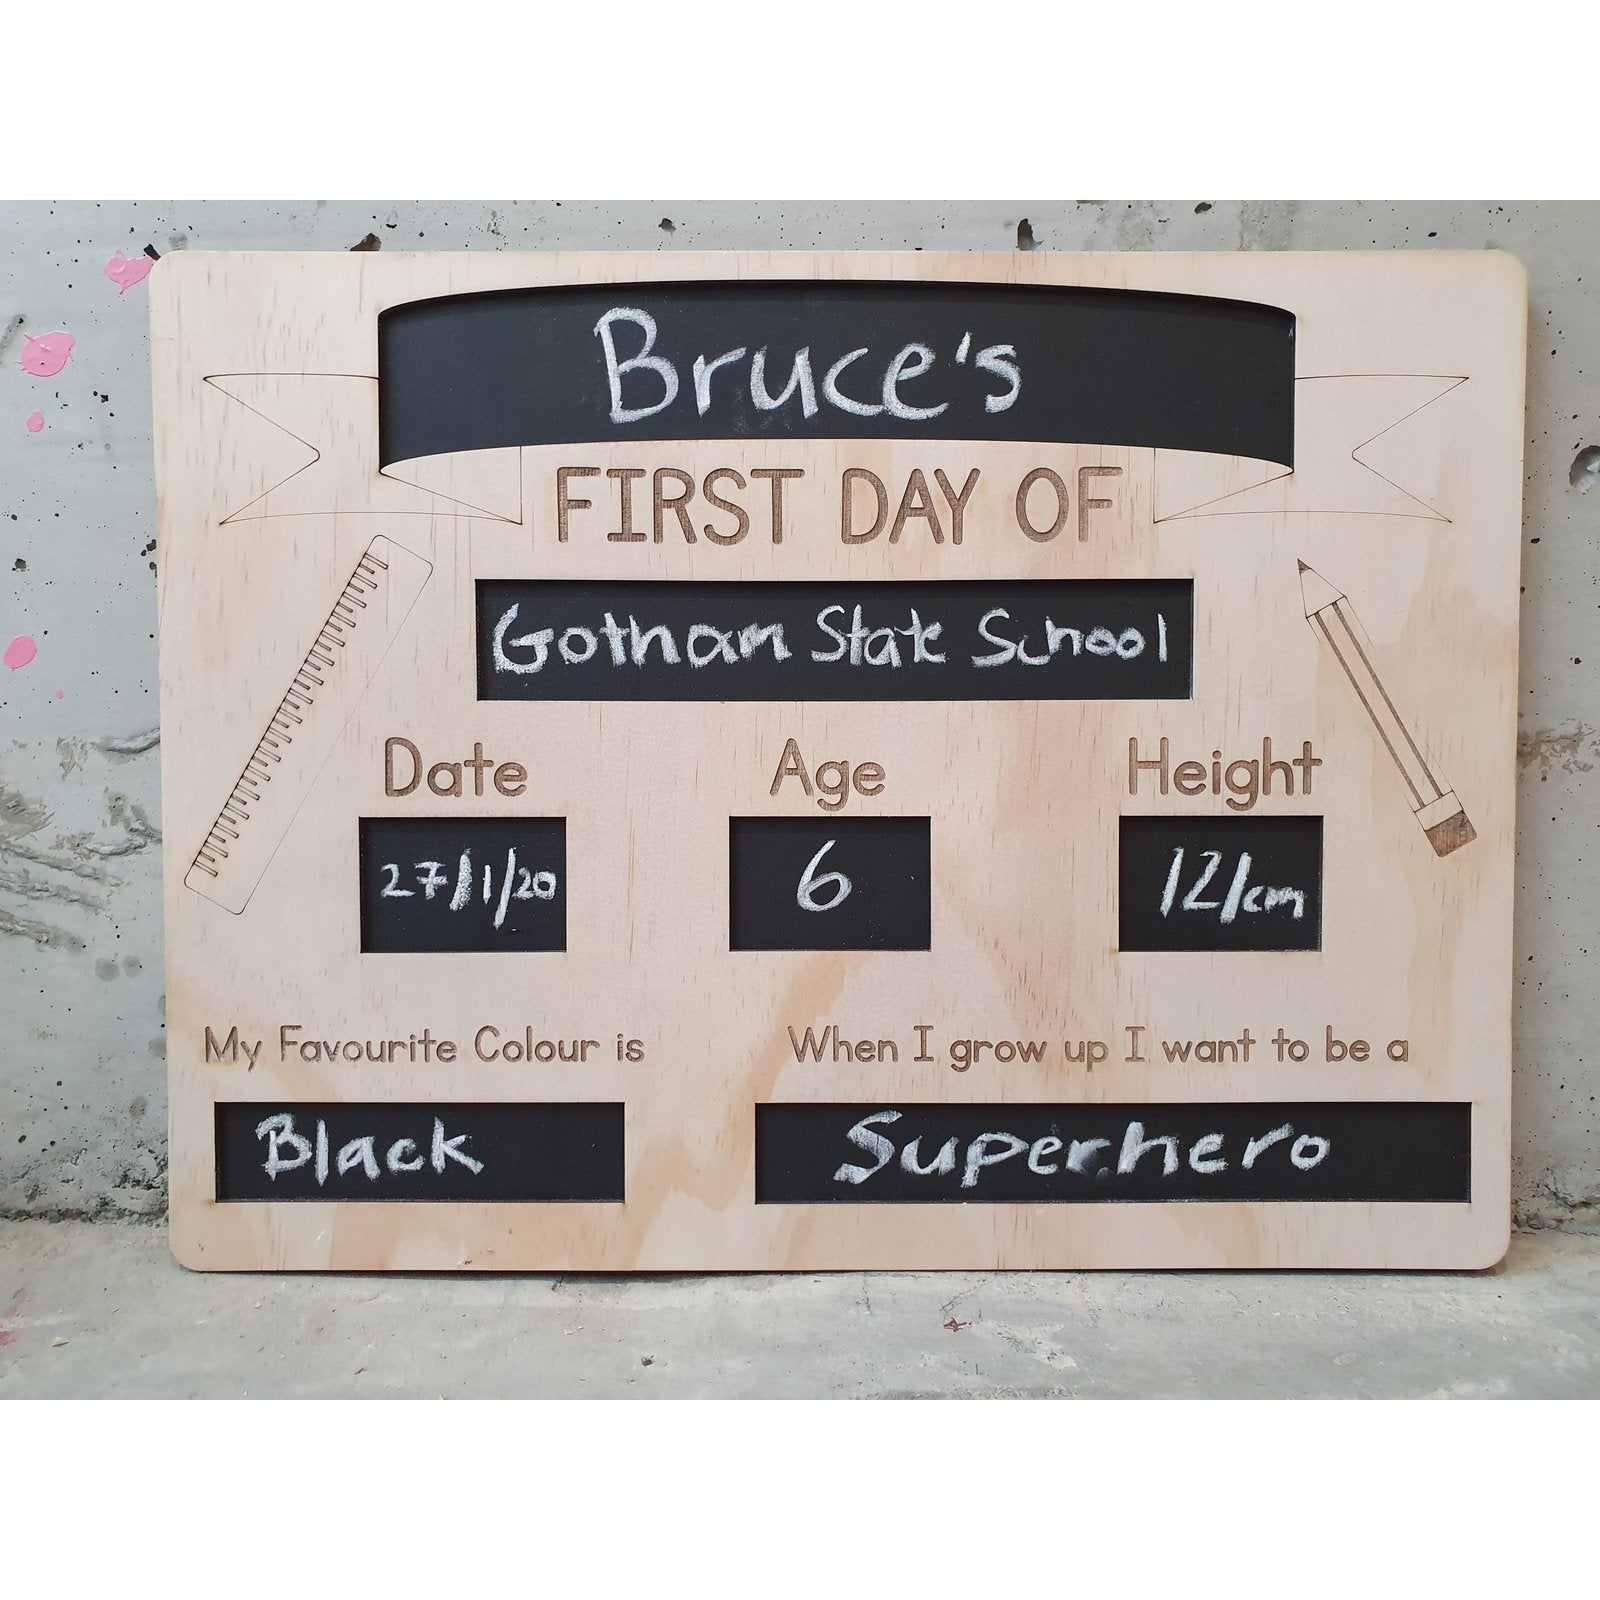 Bruce's
FIRST DAY OF
Gotham State School
Date Age Height
27/1/20 6 121cm
My Favourite Colour is When I grow up I want to be a
Black Superhero